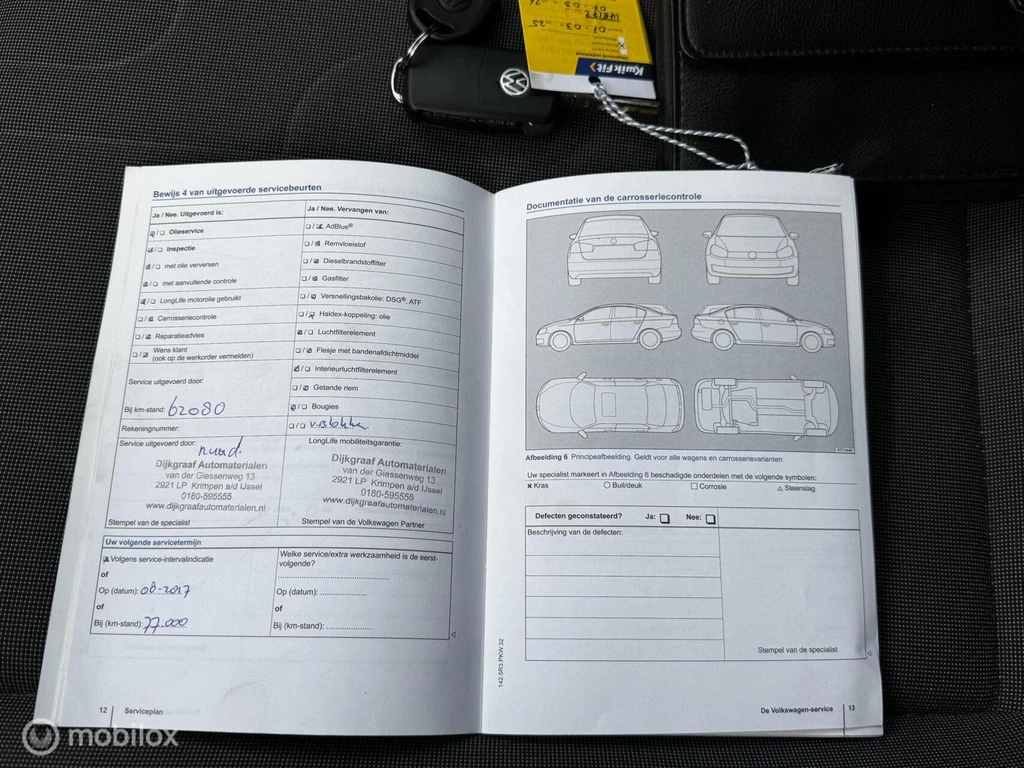 KwikFit
01-03-25
Bewijs 4 van uitgevoerde servicebeurten
Ja / Nee. Uitgevoerd is:
Olieservice
Inspectie
met olie verversen
met aanvullende controle
LongLife motorolie gebruikt
Carrosseriecontrole
Reparatieadvies
Wens klant
(ook op de werkorder vermelden)
Service uitgevoerd door:
Bij km-stand: 62080
Rekeningnummer:
Ja / Nee. Vervangen van:
AdBlue®
Remvloeistof
Dieselbrandstoffilter
Gasfilter
Versnellingsbakolie: DSG®, ATF
Haldex-koppeling: olie
Luchtfilterelement
Flesje met bandenafdichtmiddel
Interieurluchtfilterelement
Getande riem
Bougies
Service uitgevoerd door:
Dijkgraaf Automaterialen
van der Giessenweg 13
2921 LP Krimpen a/d IJssel
0180-595555
www.dijkgraafautomaterialen.nl
Stempel van de specialist
LongLife mobiliteitsgarantie:
Dijkgraaf Automaterialen
van der Giessenweg 13
2921 LP Krimpen a/d IJssel
0180-595555
www.dijkgraafautomaterialen.nl
Stempel van de Volkswagen Partner
Uw volgende servicetermijn
Volgens service-intervalindicatie
of
Op (datum): 08-2017
of
Bij (km-stand): 77.000
Welke service/extra werkzaamheid is de eerst-
volgende?
Op (datum): ....................
of
Bij (km-stand): ..................
12 Serviceplan
Documentatie van de carrosseriecontrole
Afbeelding 6 Principeafbeelding. Geldt voor alle wagens en carrosserievarianten
Uw specialist markeert in Afbeelding 6 beschadigde onderdelen met de volgende symbolen:
Kras
Buil/deuk
Corrosie
Steenslag
Defecten geconstateerd? Ja: Nee:
Beschrijving van de defecten:
Stempel van de specialist
142.5R3.PKW.32
De Volkswagen-service 13
mobilox